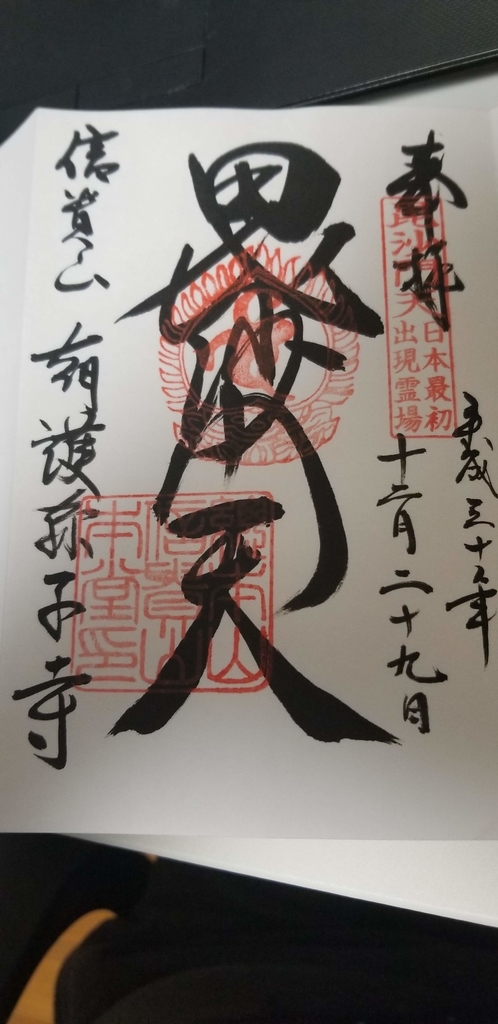 奉拝
毘沙門天
日本最初
出現霊場
平成三十年
十二月二十九日
毘沙門天
信貴山
本堂印
信貴山 朝護孫子寺